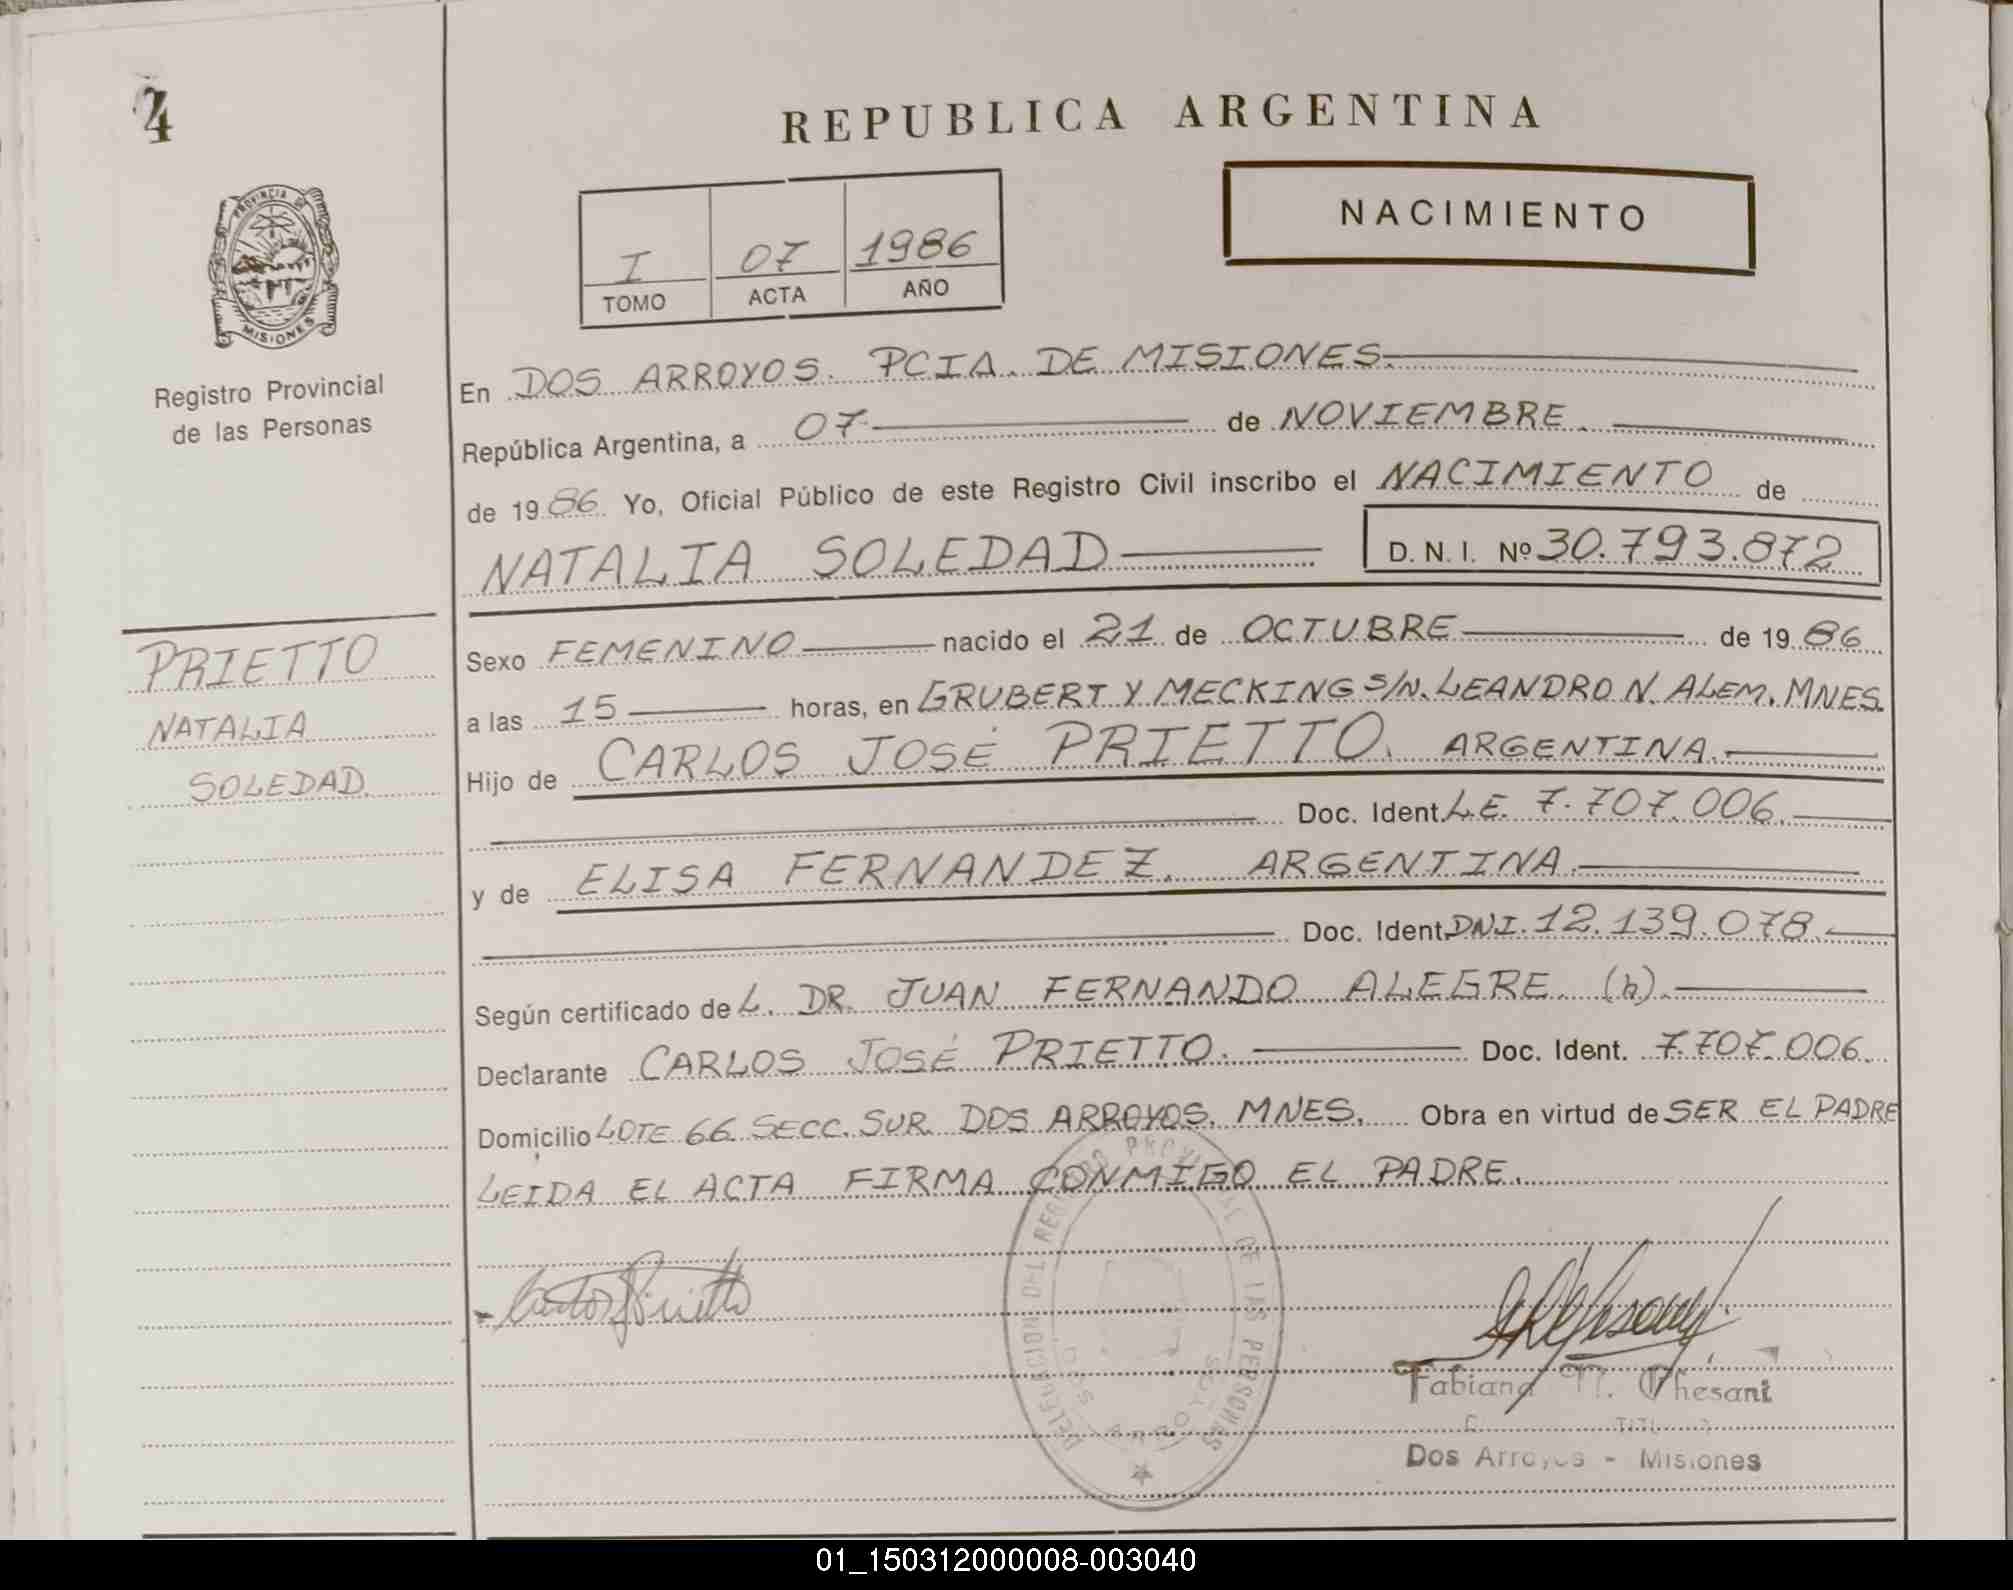 4
REPUBLICA ARGENTINA
NACIMIENTO
I 07 1986
TOMO ACTA AÑO
PROVINCIA DE
MISIONES
Registro Provincial
de las Personas
En DOS ARROYOS. PCIA. DE MISIONES.
República Argentina, a 07 de NOVIEMBRE.
de 1986 Yo, Oficial Público de este Registro Civil inscribo el NACIMIENTO de
NATALIA SOLEDAD D. N. I. Nº 30.793.872
PRIETTO
NATALIA
SOLEDAD.
Sexo FEMENINO nacido el 21 de OCTUBRE de 1986
a las 15 horas, en GRUBERT Y MECKING S/N. LEANDRO N. ALEM. MNES.
Hijo de CARLOS JOSÉ PRIETTO. ARGENTINA.
Doc. Ident. L.E. 7.707.006.
y de ELISA FERNANDEZ. ARGENTINA.
Doc. Ident. DNI. 12.139.078.
Según certificado de L. DR. JUAN FERNANDO ALEGRE (h).
Declarante CARLOS JOSÉ PRIETTO. Doc. Ident. 7.707.006.
Domicilio LOTE 66 SECC. SUR. DOS ARROYOS. MNES. Obra en virtud de SER EL PADRE
LEIDA EL ACTA FIRMA CONMIGO EL PADRE.
DELEGACION DEL REGISTRO PROVINCIAL DE LAS PERSONAS
DOS ARROYOS
Carlos J Prietto
Fabiana N. Ghesani
Dos Arroyos - Misiones
01_150312000008-003040